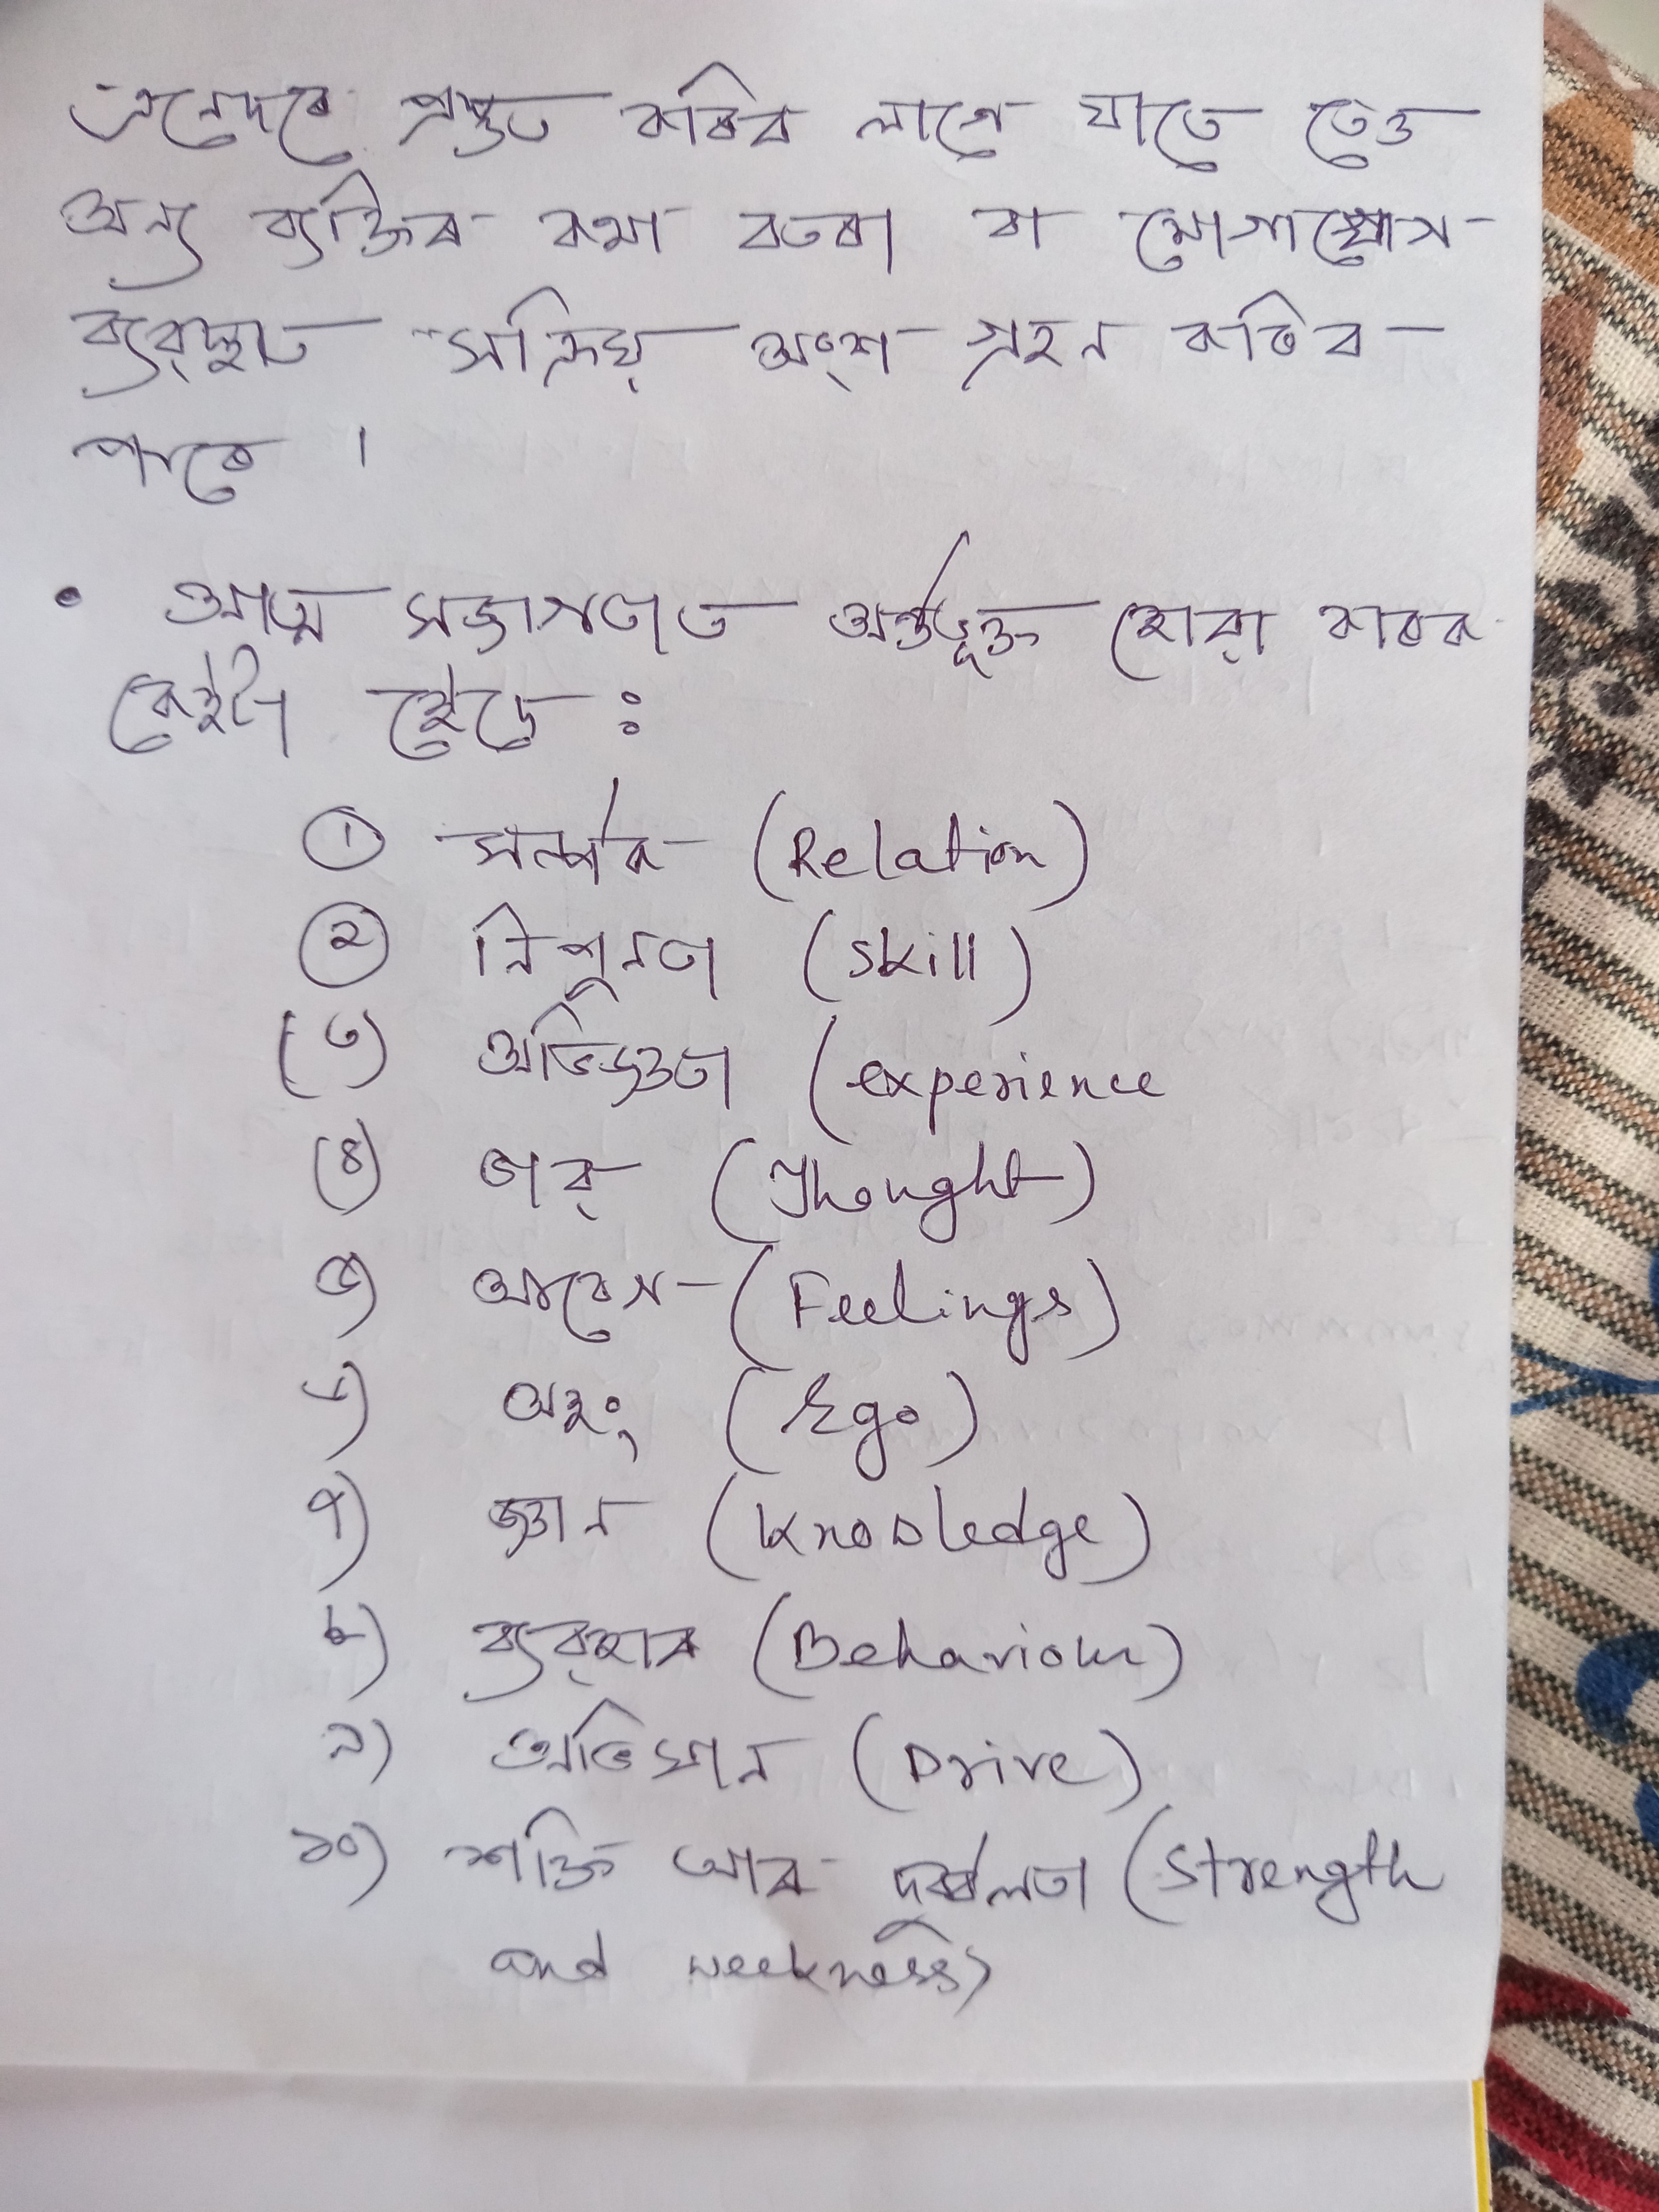 এনেদৰে প্ৰস্তুত কৰিব লাগে যাতে তেওঁ
অন্য ব্যক্তিৰ কথা বতৰা বা যোগাযোগ
ব্যৱস্থাত সক্ৰিয় অংশ গ্ৰহন কৰিব
পাৰে ।
• আত্ম সজাগতাত অৰ্ন্তভূক্ত হোৱা কাৰক
কেইটা হৈছে :
① সম্পৰ্ক (Relation)
② নিপুনতা (skill)
(৩) অভিজ্ঞতা (experience
(৪) ভাৱ (Thought)
৫) আবেগ - (Feelings)
৬) অহং (Ego)
৭) জ্ঞান (Knowledge)
৮) ব্যৱহাৰ (Behaviour)
৯) অভিযান (Drive)
১০) শক্তি আৰু দুৰ্বলতা (Strength
and weekness)